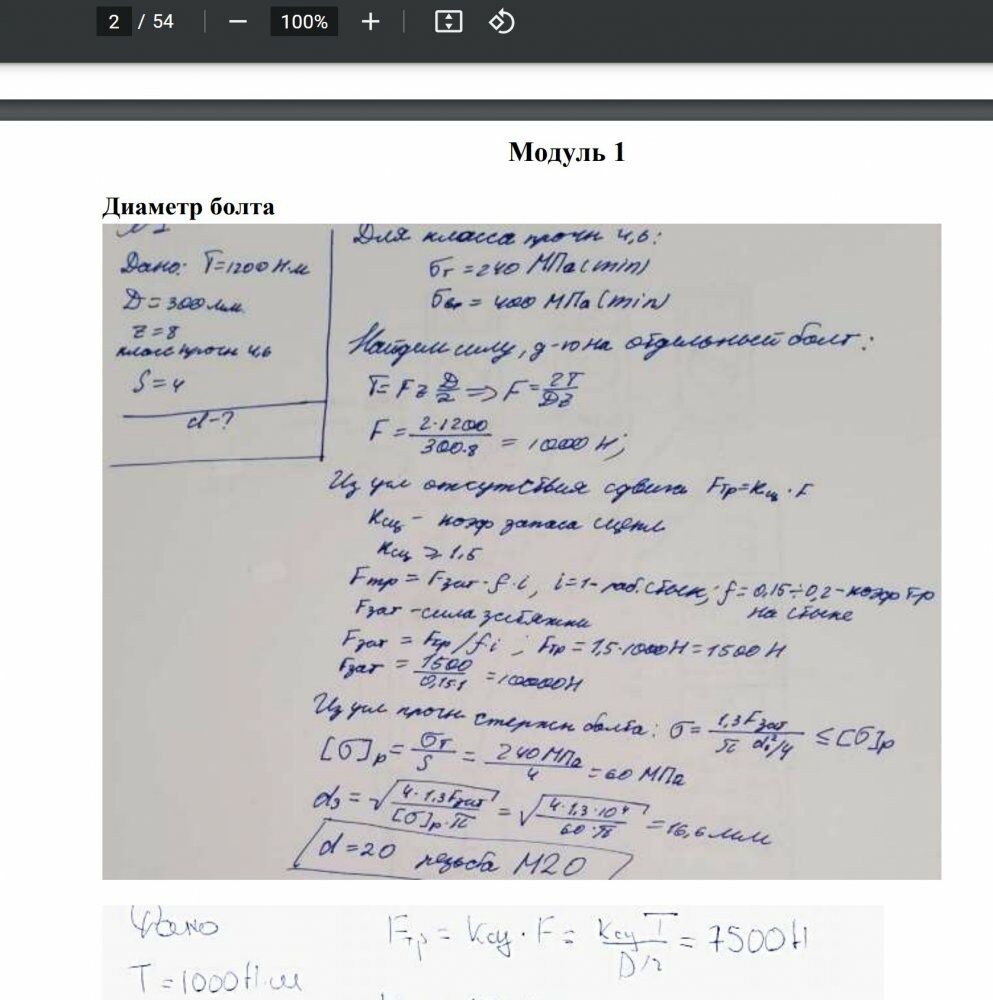 2 / 54 − 100% +
Модуль 1
Диаметр болта
Дано: T=1200 Н·м
D=300 мм
z=8
класс прочн 4,6
S=4
d-?
Для класса прочн 4,6:
σт = 240 МПа (min)
σвр = 400 МПа (min)
Найдем силу, д-ю на отдельный болт:
T = Fz D/2 => F = 2T/Dz
F = 2·1200/300·8 = 1000 Н;
Из усл отсутствия сдвига Fтр = Kсц · F
Kсц - коэф запаса сцепл
Kсц ⩾ 1,5
Fтр = Fзат · f · i, i=1 - раб. стык; f = 0,15÷0,2 - коэф тр
на стыке
Fзат - сила затяжки
Fзат = Fтр / f·i ; Fтр = 1,5·1000Н = 1500 Н
Fзат = 1500/0,15·1 = 10000Н
Из усл прочн стержн болта: σ = 1,3Fзат/π d₃²/4 ≤ [σ]р
[σ]р = σт/S = 240 МПа/4 = 60 МПа
d₃ = √4·1,3Fзат/[σ]р·π = √4·1,3·10⁴/60·π = 16,6 мм
d = 20 резьба М20
Дано
Fтр = Kсц · F = Kсц T/D/2 = 7500Н
T = 1000 Н·м